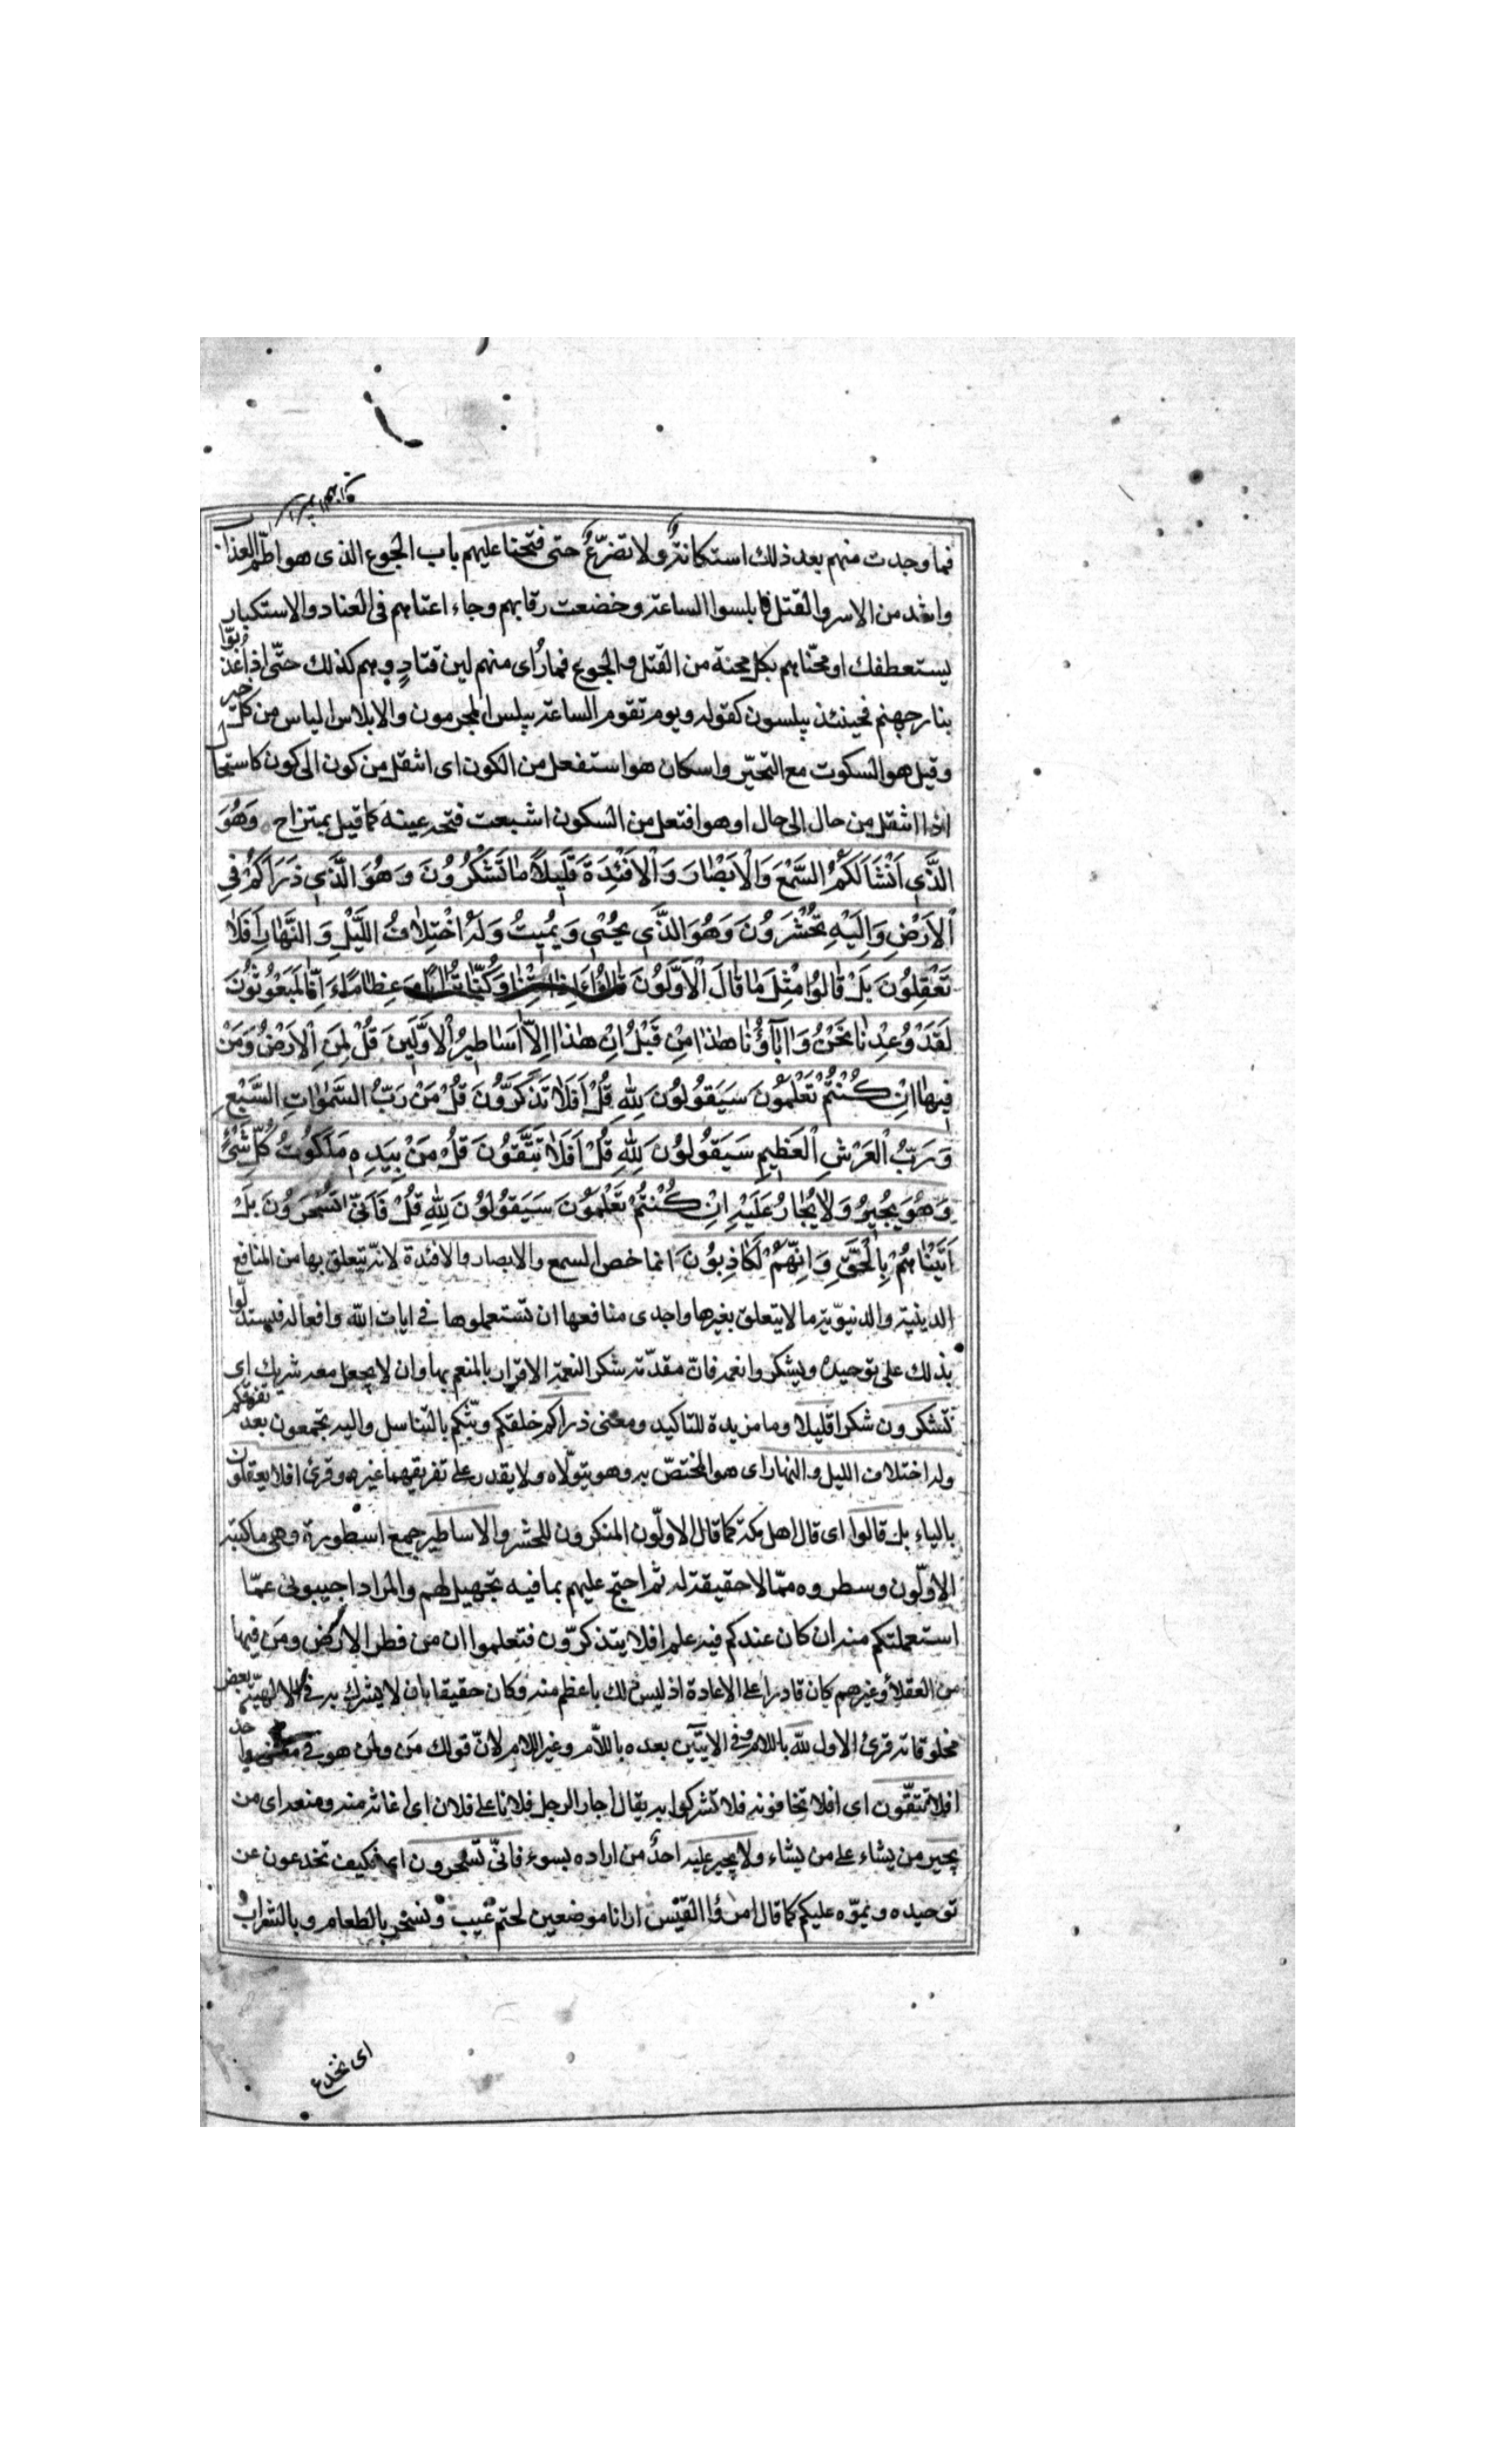 فما وجدت منهم بعد ذلك استكانة ولا تضرّع حتى فتحنا عليهم باب الجوع الذى هو اطمّ العذاب
واشد من الاسر والقتل فابلسوا الساعة وخضعت رقابهم وجاء اعتاهم فى العناد والاستكبار
يستعطفك او محنّاهم بكل محنة من القتل والجوع فما رُاى منهم لين قتادٍ وهم كذلك حتّى اذا عذّبوا
بنار جهنم فحينئذ يبلسون كقوله ويوم تقوم الساعة يبلس المجرمون والابلاس الياس من كل خير
وقيل هو السكوت مع التحيّر واستكان هو استفعل من الكون اى انتقل من كون الى كون كاستحال
اذا انتقل من حال الى حال او هو افتعل من السكون اشبعت فتحة عينه كما قيل بمنتزاح وَهُوَ
الَّذَى اَنْشَاَلَكُمُ السَّمْعَ وَالْاَبْصٰارَ وَالْاَفْئِدَةَ قَلِيلًا مٰا تَشْكُرُونَ وَهُوَ الَّذَى ذَرَاَكُمْ فِى
الْاَرْضِ وَاِلَيْهِ تُحْشَرُونَ وَهُوَ الَّذَى يُحْيِى وَيُمِيتُ وَلَهُ اخْتِلٰافُ اللَّيْلِ وَالنَّهٰارِ اَفَلٰا
تَعْقِلُونَ بَلْ قٰالُوا مِثْلَ مٰا قٰالَ الْاَوَّلُونَ قٰالُوا ءَاِذٰا مِتْنٰا وَكُنّٰا تُرٰابًا وَعِظٰامًا ءَاِنّٰا لَمَبْعُوثُونَ
لَقَدْ وُعِدْنٰا نَحْنُ وَاٰبٰآؤُنٰا هٰذٰا مِنْ قَبْلُ اِنْ هٰذٰا اِلّٰا اَسٰاطِيرُ الْاَوَّلَينَ قُلْ لِمَنِ الْاَرْضُ وَمَنْ
فِيهٰا اِنْ كُنْتُمْ تَعْلَمُونَ سَيَقُولُونَ لِلّٰهِ قُلْ اَفَلٰا تَذَكَّرُونَ قُلْ مَنْ رَبُّ السَّمٰوٰاتِ السَّبْعِ
وَرَبُّ الْعَرْشِ الْعَظِيمِ سَيَقُولُونَ لِلّٰهِ قُلْ اَفَلٰا تَتَّقُونَ قُلْ مَنْ بِيَدِهِ مَلَكُوتُ كُلِّ شَىْءٍ
وَهُوَ يُجِيرُ وَلٰا يُجٰارُ عَلَيْهِ اِنْ كُنْتُمْ تَعْلَمُونَ سَيَقُولُونَ لِلّٰهِ قُلْ فَاَنّٰى تُسْحَرُونَ بَلْ
اَتَيْنٰاهُمْ بِالْحَقِّ وَاِنَّهُمْ لَكٰاذِبُونَ انما خص السمع والابصار والافئدة لانه يتعلق بها من المنافع
الدينية والدنيوّية ما لا يتعلق بغيرها واحدى منافعها ان تستعملوها فى ايات الله وافعاله فيستدلّوا
بذلك على توحيده ويشكروا نعمه فانّ مقدّمة شكر النعمة الاقرار بالمنعم بها وان لا يجعل معه شريك اى
تشكرون شكرا قليلا وما مزيدة للتاكيد ومعنى ذراكم خلقكم وبثّكم بالتّناسل واليه تجمعون بعد تفرقكم
وله اختلاف الليل والنهار اى هو المختصّ به وهو يتولّاه ولا يقدر على تفريقهما غيره وقرئ افلا يعقلون
بالياء بل قالوا اى قال اهل مكة كما قال الاولّون المنكرون للحشر والاساطير جمع اسطورة وهى ما كتبه
الاولّون وسطروه ممّا لا حقيقة له ثم احتج عليهم بما فيه تجهيل لهم والمراد اجيبونى عمّا
استعملتكم منه ان كان عندكم فيه علم افلا يتذكرّون فتعلموا ان من فطر الارض ومَن فيها
من العقلاء وغيرهم كان قادرا على الاعادة اذ ليس ذلك باعظم منه وكان حقيقا بان لا يشرك به فى الالهيّة بعض
مخلوقاته قرئ الاول لله باللام وفى الايتَين بعده باللاّم وغير اللام لانّ قولك مَن ولمن هو فى معنى واحد
افلا تتقّون اى افلا تخافونه فلا تشركوا به يقال اجار الرجل فلانا على فلان اى اغاثه منه ومنعه اى من
يجير من يشاء على من يشاء ولا يجير عليه احدٌ من اراده بسوء فانّى تسحرون اى فكيف تخدعون عن
توحيده ونموّه عليكم كما قال امرؤا القَيْس ارانا موضعين لحتم غيب ونسحر بالطعام وبالشراب
اى نخدع